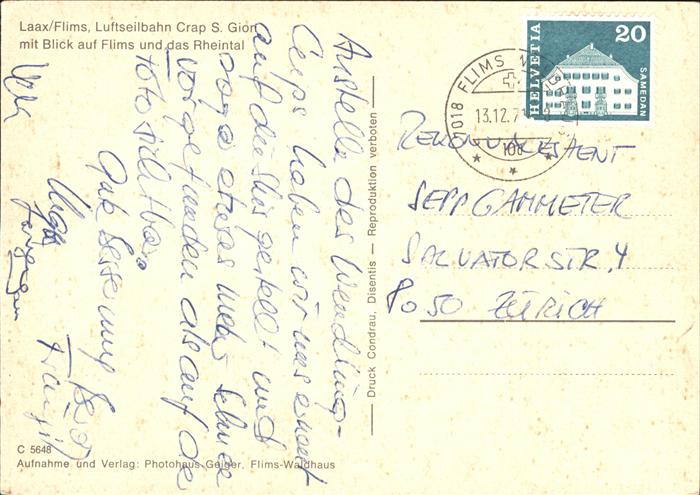 Laax/Flims, Luftseilbahn Crap S. Gion
mit Blick auf Flims und das Rheintal
Anstelle des Wendling-
Cups haben wir uns erneut
auf die Skis gestellt und
sogar etwas mehr Schnee
vorgefunden als auf der
Foto sichtbar
Gute Besserung
Druck Condrau, Disentis — Reproduktion verboten
HELVETIA
20
SAMEDAN
7018 FLIMS
13.12.7
REKONVALESZENT
SEPP GAMMETER
SALVATORSTR. 4
8050 ZÜRICH
C 5648
Aufnahme und Verlag: Photohaus Geiger, Flims-Waldhaus